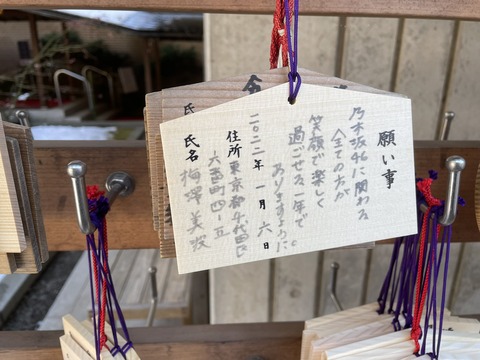 願い事
乃木坂46に関わる
全ての方が
笑顔で楽しく
過ごせる一年で
ありますように。
二〇二二年 一月 六日
住所 東京都千代田区
六番町4-5
氏名 梅澤美波
氏